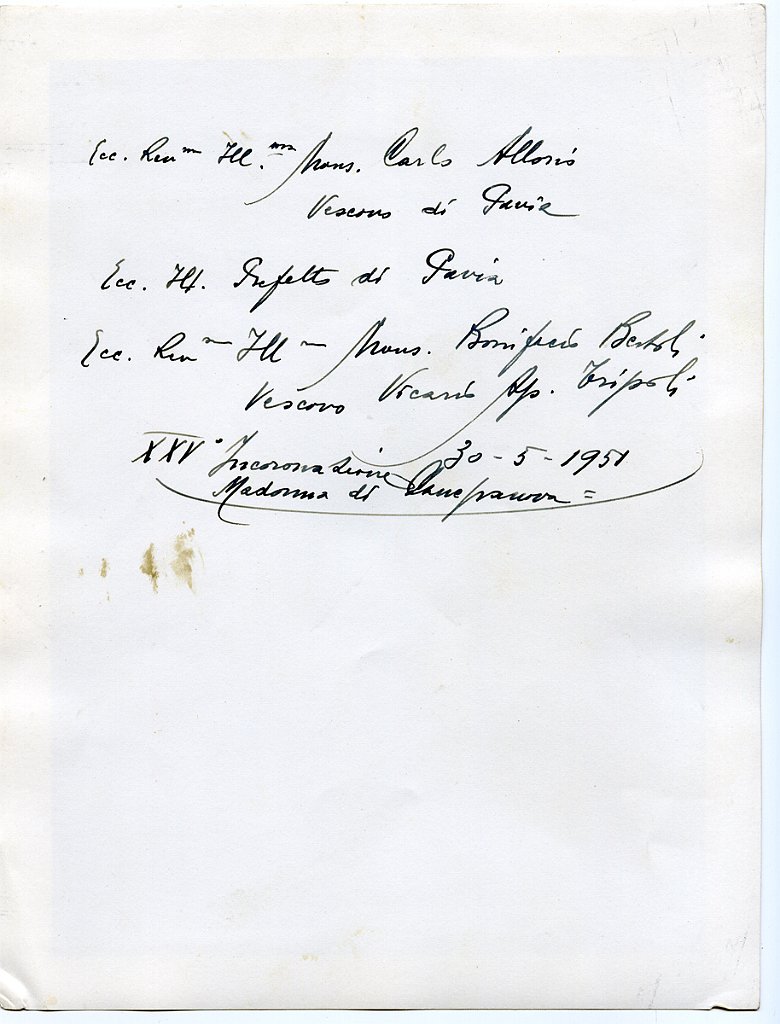 Ecc. Rev.mo Ill.mo Mons. Carlo Allorio
Vescovo di Pavia
Ecc. Ill. Prefetto di Pavia
Ecc. Rev.mo Ill.mo Mons. Bonifacio Bertoli
Vescovo Vicario Ap. Tripoli
XXV° Incoronazione 30-5-1951
Madonna di Canepanova =